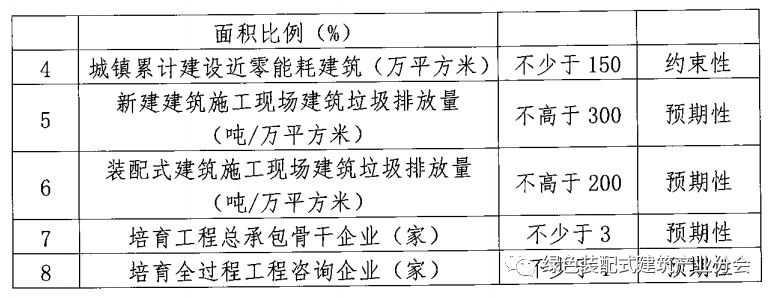 面积比例（%）
4 城镇累计建设近零能耗建筑（万平方米） 不少于 150 约束性
5 新建建筑施工现场建筑垃圾排放量（吨/万平方米） 不高于 300 预期性
6 装配式建筑施工现场建筑垃圾排放量（吨/万平方米） 不高于 200 预期性
7 培育工程总承包骨干企业（家） 不少于 3 预期性
8 培育全过程工程咨询企业（家） 不少于 1 预期性
绿色装配式建筑产业分会